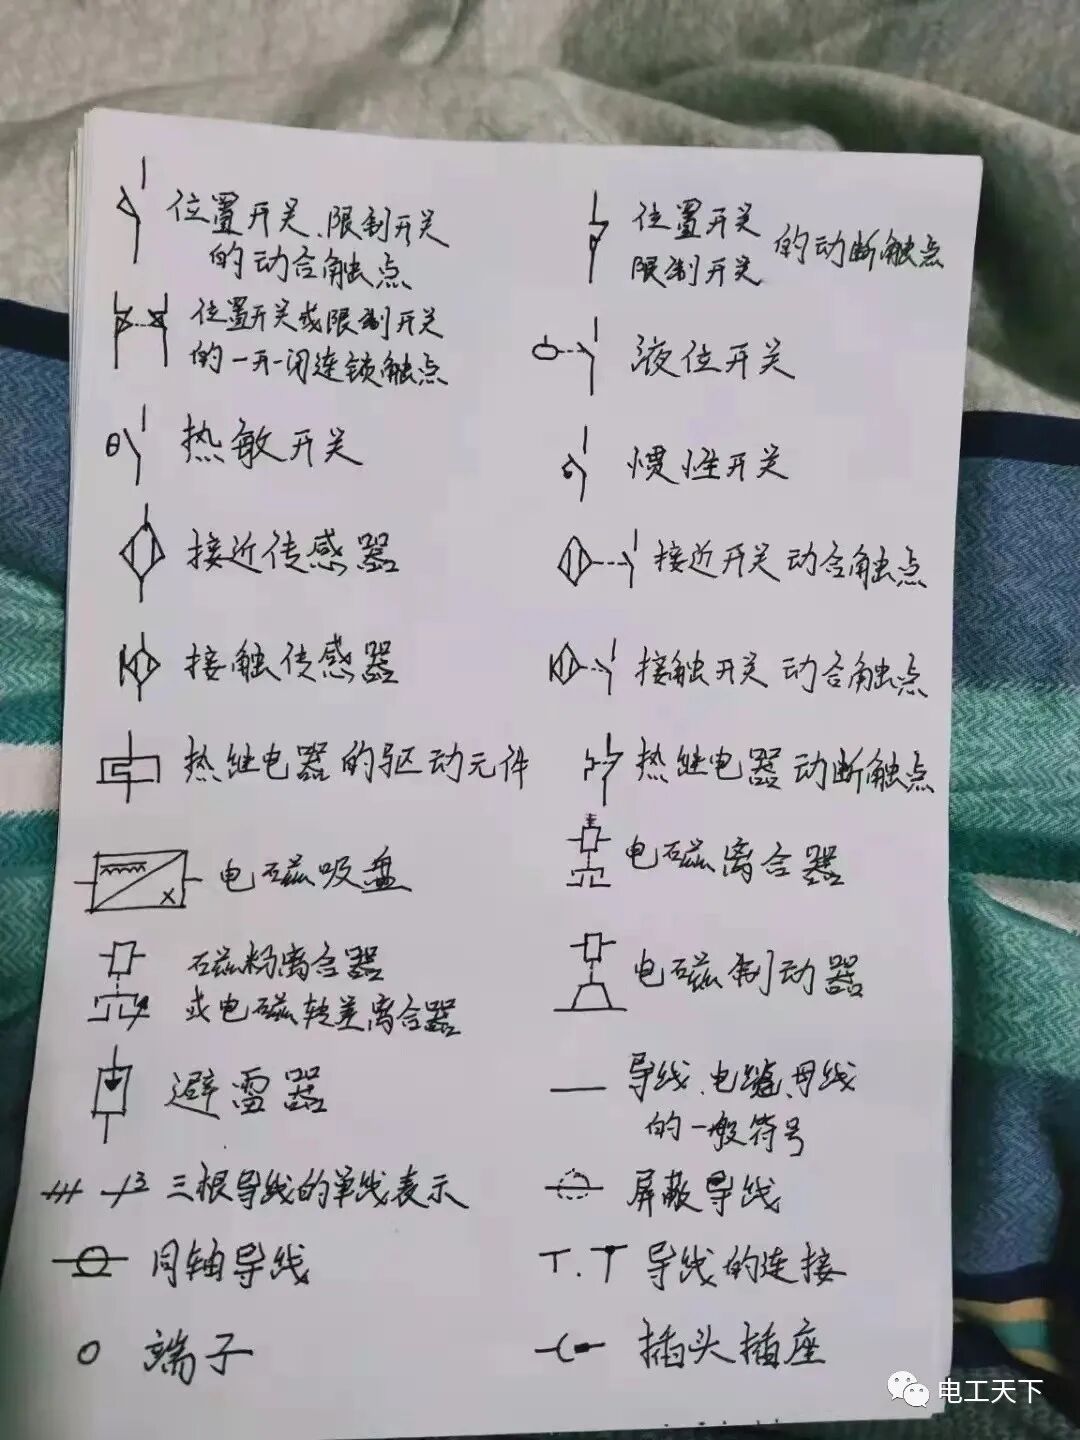 位置开关、限制开关
的动合触点
位置开关
限制开关
的动断触点
位置开关或限制开关
的一开一闭连锁触点
液位开关
θ
热敏开关
惯性开关
接近传感器
接近开关 动合触点
接触传感器
接触开关 动合触点
热继电器的驱动元件
热继电器动断触点
电磁吸盘
电磁离合器
磁粉离合器
或电磁转差离合器
电磁制动器
避雷器
导线、电缆、母线
的一般符号
3
三根导线的单线表示
屏蔽导线
同轴导线
导线的连接
端子
插头插座
电工天下